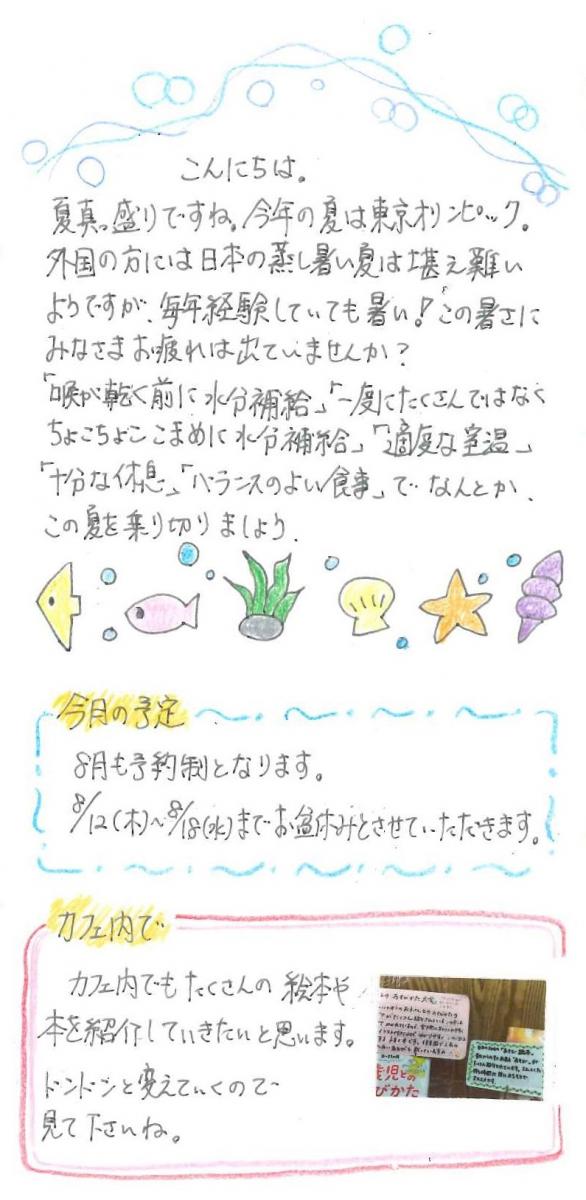 こんにちは。
夏真っ盛りですね。今年の夏は東京オリンピック。
外国の方には日本の蒸し暑い夏は堪え難い
ようですが、毎年経験していても暑い!この暑さに
みなさまお疲れは出ていませんか?
「喉が乾く前に水分補給」「一度にたくさんではなく
ちょこちょここまめに水分補給」「適度な室温」
「十分な休息」「バランスのよい食事」で なんとか、
この夏を乗り切りましょう。
今月の予定
8月も予約制となります。
8/12(木)~8/18(水)までお盆休みとさせていただきます。
カフェ内で
カフェ内でもたくさんの 絵本や
本を紹介していきたいと思います。
ドンドンと変えていくので
見て下さいね。
児との
びかた